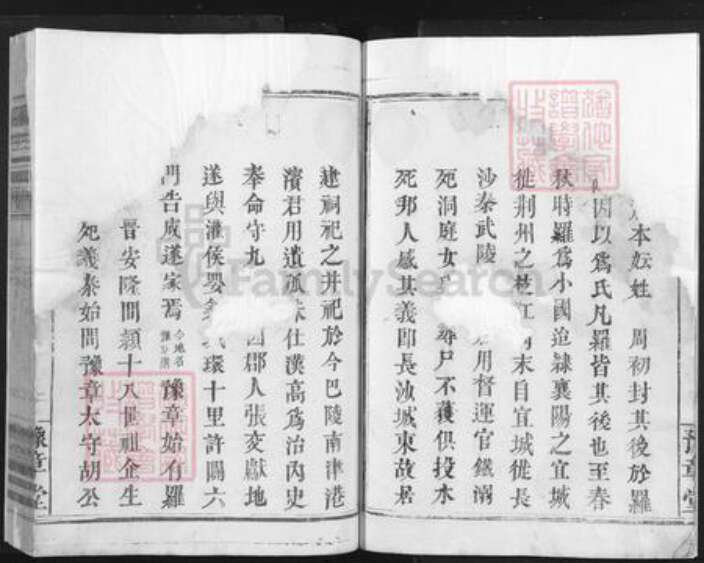 本妘姓　周初封其後於羅
因以爲氏凡羅皆其後也至春
秋時羅爲小國迨隷襄陽之宜城
徙荆州之枝江　末自宜城徙長
沙秦武陵　用督運官鐵溺
死洞庭女　尸不獲俱投水
死邦人感其義即長沙城東故居
建祠祀之并祀於今巴陵南津港
濱君用遺孤　仕漢高爲治内史
奉命守九　因郡人張変獻地
遂與灌侯嬰　環十里許闢六
門告成遂家焉　豫章始有羅
晉安隆間顥十八世祖企生
死義泰始間豫章太守胡公
豫章堂
豫章堂
FamilySearch